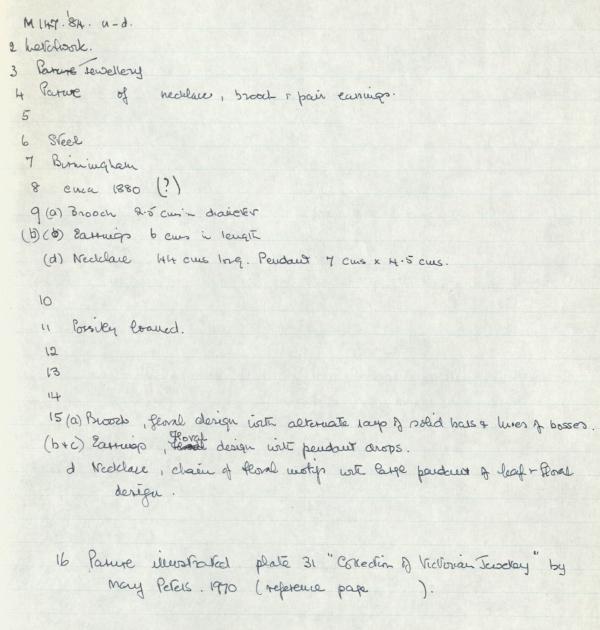 M 147.'84. a-d.
2 Metalwork.
3 Parure Jewellery
4 Parure of necklace, brooch + pair earrings.
5
6 Steel
7 Birmingham
8 circa 1880 (?)
9 (a) Brooch 2.5 cms in diameter
(b)(c) Earrings 6 cms in length
(d) Necklace 44 cms long. Pendant 7 cms x 4.5 cms.
10
11 Possibly loaned.
12
13
14
15 (a) Brooch, floral design with alternate rays of solid bars + lines of bosses.
(b+c) Earrings, floral design with pendant drops.
d Necklace, chain of floral motifs with large pendant of leaf + floral
design.
16 Parure illustrated plate 31 "Collection of Victorian Jewellery" by
Mary Peters. 1970 (reference page ).